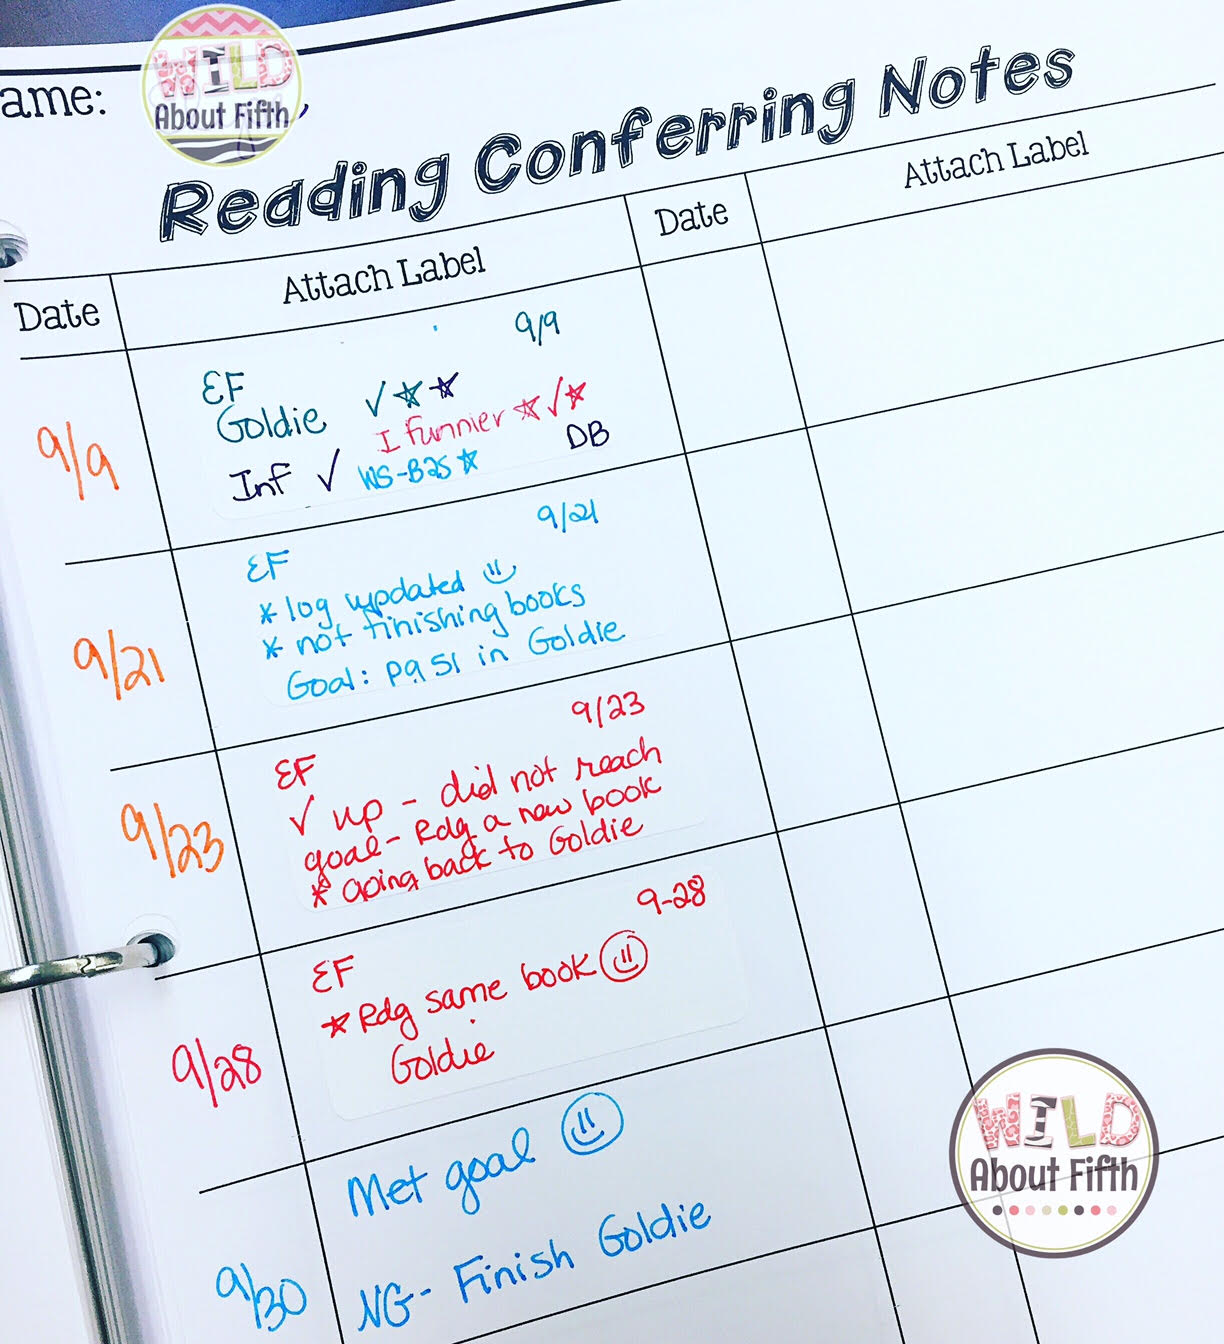 ame:
WILD
About Fifth
Reading Conferring Notes
Date
Attach Label
Date
Attach Label
9/9
9/9
EF
Goldie
I funnier
Inf WS-B25 DB
9/21
9/21
EF
* log updated
* not finishing books
Goal: pg 51 in Goldie
9/23
9/23
EF
✓ up - did not reach
goal - Rdg a new book
* Going back to Goldie
9/28
9-28
EF
Rdg same book
Goldie
9/30
Met goal
NG- Finish Goldie
WILD
About Fifth